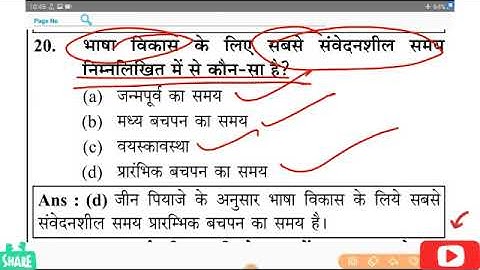 10:45
94%
Page No
20. भाषा विकास के लिए सबसे संवेदनशील समय
निम्नलिखित में से कौन-सा है?
(a) जन्मपूर्व का समय
(b) मध्य बचपन का समय
(c) वयस्कावस्था
(d) प्रारंभिक बचपन का समय
Ans : (d) जीन पियाजे के अनुसार भाषा विकास के लिये सबसे
संवेदनशील समय प्रारम्भिक बचपन का समय है।
SHARE